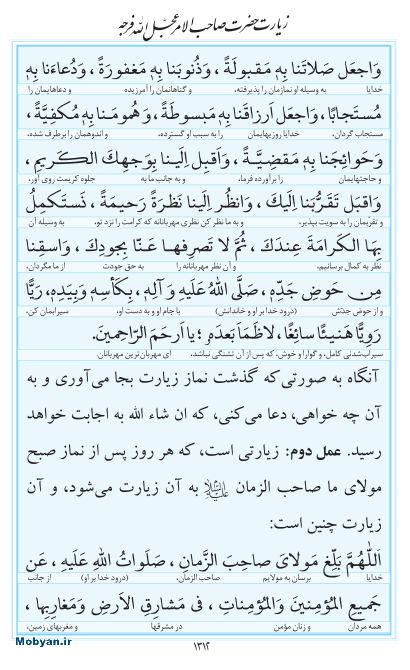 زیارت حضرت صاحب الامر عجل الله فرجه
وَاجعَل صَلاتَنا بِهٖ مَقبولَةً ، وَذُنوبَنا بِهٖ مَغفورَةً ، وَدُعاءَنا بِهٖ
خدایا به وسیله او نمازمان را پذیرفته، و گناهانمان را آمرزیده و دعاهایمان را
مُستَجابًا ، وَاجعَل اَرزاقَنا بِهٖ مَبسوطَةً ، وَهُمومَنا بِهٖ مَكفِيَّةً ،
مستجاب گردان، خدایا روزیهایمان را به سبب او گسترده، و اندوهمان را برطرف شده،
وَحَوائِجَنا بِهٖ مَقضِيَّةً ، وَاَقبِل اِلَينا بِوَجهِكَ الكَريمِ ،
و حاجتهایمان را برآورده فرما، و به جانب ما به جلوه کریمت روی آور،
وَاقبَل تَقَرُّبَنا اِلَيكَ ، وَانظُر اِلَينا نَظرَةً رَحيمَةً ، نَستَكمِلُ
و تقربمان را به سویت بپذیر، و به ما نظر کن نظری مهربانانه که کرامت را نزد تو، به وسیله آن
بِهَا الكَرامَةَ عِندَكَ ، ثُمَّ لا تَصرِفها عَنّا بِجودِكَ ، وَاسقِنا
نظر به کمال برسانیم، و آن نظر مهربانانه را به حق جودت از ما مگردان،
مِن حَوضِ جَدِّهٖ ، صَلَّى اللهُ عَلَيهِ وَ آلِهٖ ، بِكَأسِهٖ وَبِيَدِهٖ ، رَيًّا
و از حوض جدّش (درود خدا بر او و خاندانش) با جام او و به دست او، سیرابمان کن،
رَوِيًّا هَنيئًا سائِغًا ، لاظَمَاَ بَعدَهٗ ؛ يا اَرحَمَ الرّاحِمينَ.
سیراب‌شدنی کامل، و گوارا و خوش، که پس از آن تشنگی نباشد، ای مهربان‌ترین مهربانان.
آنگاه به صورتی که گذشت نماز زیارت بجا می‌آوری و به
آن چه خواهی، دعا می‌کنی، که ان شاء الله به اجابت خواهد
رسید. عمل دوم: زیارتی است، که هر روز پس از نماز صبح
مولای ما صاحب الزمان علیه‌السلام به آن زیارت می‌شود، و آن
زیارت چنین است:
اَللّٰهُمَّ بَلِّغ مَولايَ صاحِبَ الزَّمانِ ، صَلَواتُ اللهِ عَلَيهِ ، عَن
خدایا برسان به مولایم صاحب الزمان، (درود خدا بر او) از جانب
جَميعِ المُؤمِنينَ وَالمُؤمِناتِ ، في مَشارِقِ الاَرضِ وَمَغارِبِها ،
همه مردان و زنان مؤمن در مشرقها و مغربهای زمین،
۱۳۱۲
Mobyan.ir